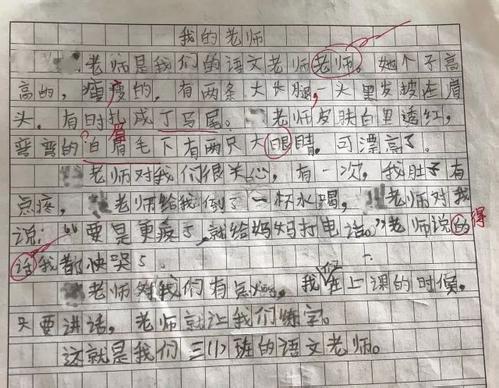 我的老师
老师是我们的语文老师老师。她个子高
高的，瘦瘦的，有两条大长腿，一头黑发披在肩
头，有时扎成了马尾。老师皮肤白里透红，
弯弯的眉毛下有两只大眼睛，可漂亮了。
老师对我们很关心，有一次，我肚子有
点疼，老师给我倒了一杯水喝，老师对我
说：“要是更疼了，就给妈妈打电话。”老师说的
得
话我都快哭了
老师对我们有点，我在上课的时候，
只要讲话，老师就让我们练字。
这就是我们三(1)班的语文老师。